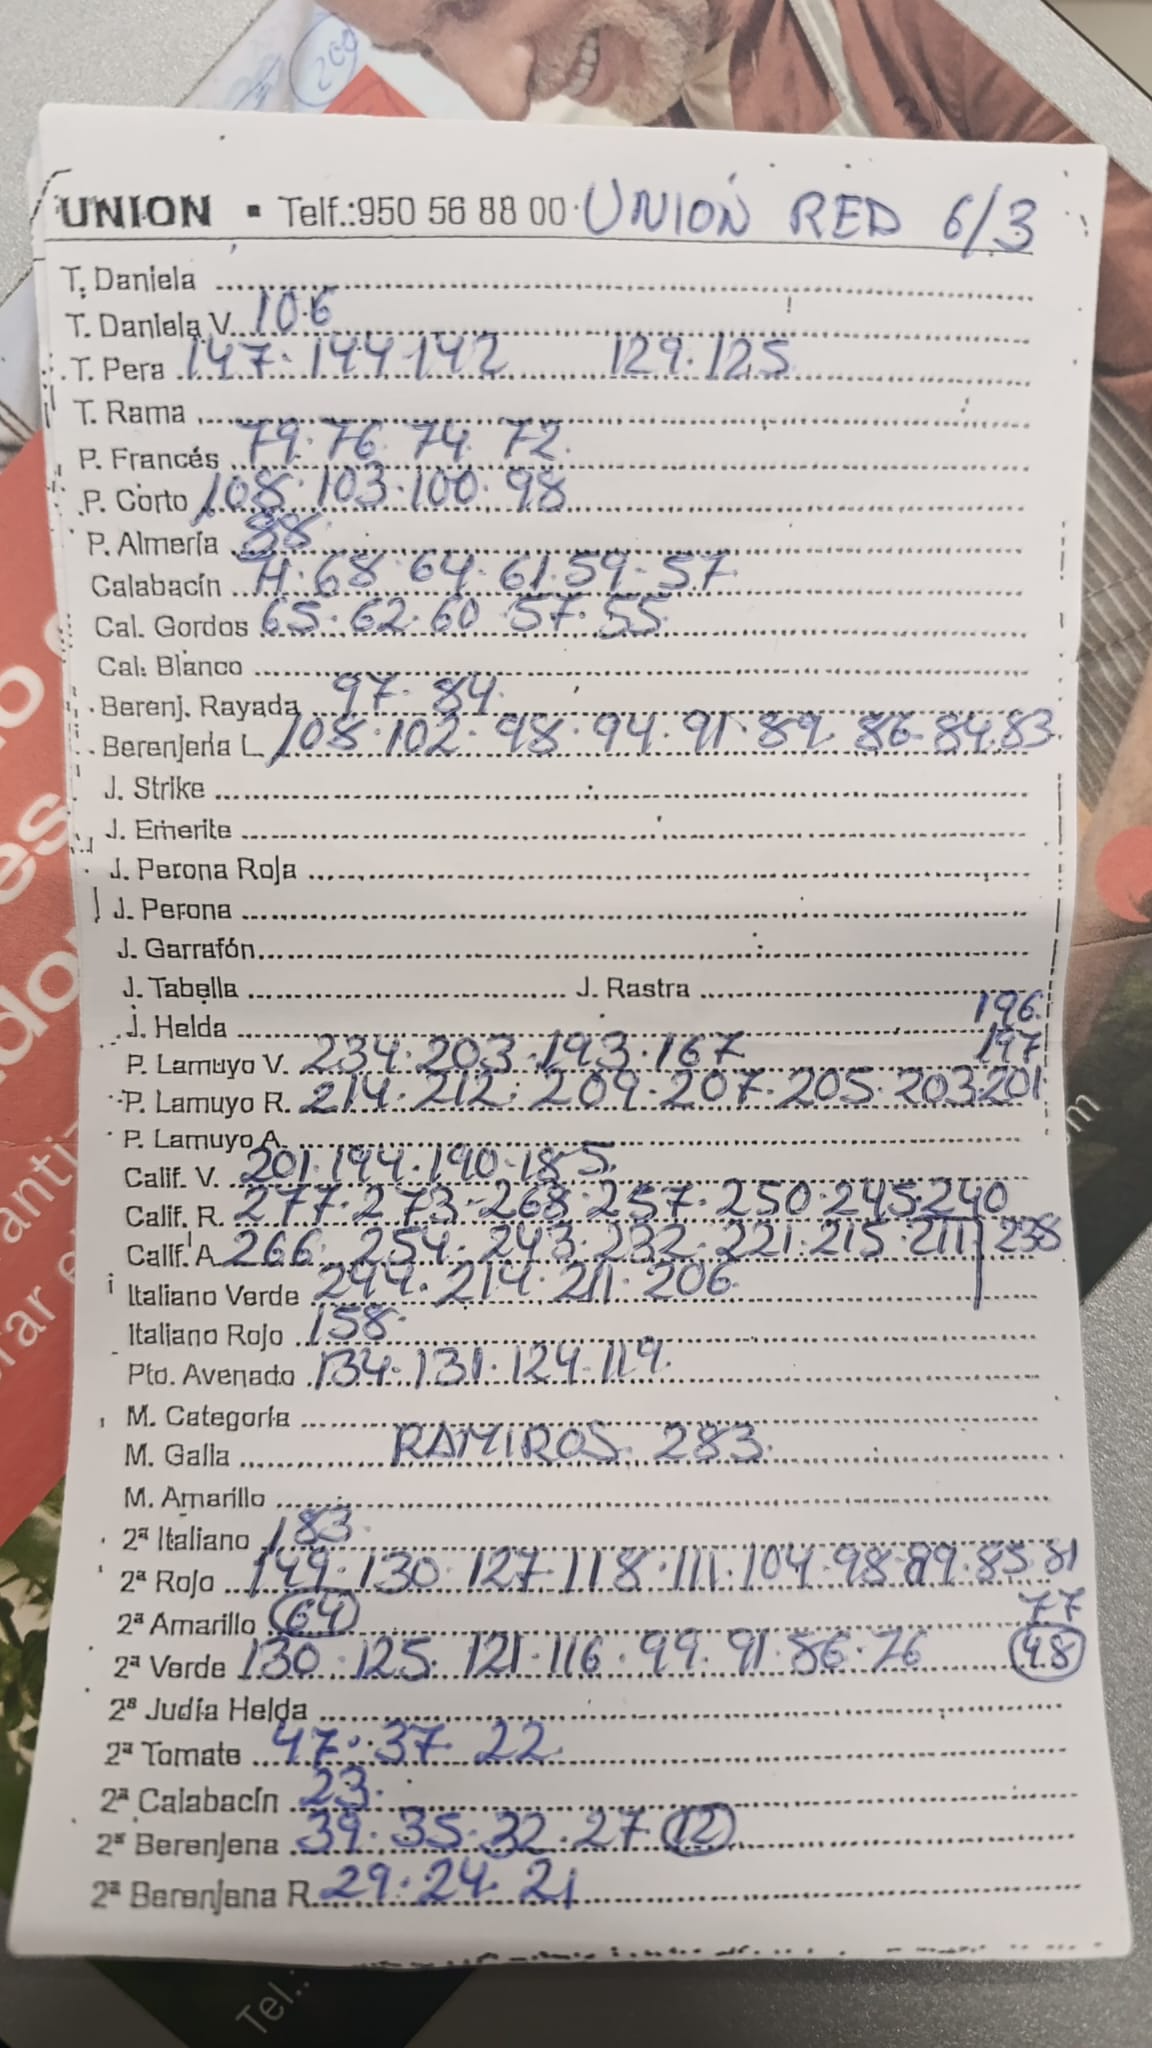 UNION ▪ Telf.:950 56 88 00 UNION RED 6/3
T. Daniela
T. Daniela V. 106
T. Pera 147. 144 142 129. 125
T. Rama
P. Francés 79. 76 74 72.
P. Corto 108. 103. 100. 98
P. Almería 88
Calabacín 71. 68. 64. 61. 59. 57
Cal. Gordos 65. 62. 60 57. 55
Cal. Blanco
Berenj. Rayada 97. 84.
Berenjena L. 108. 102. 98. 94. 91. 89. 86. 84. 83
J. Strike
J. Emerite
J. Perona Roja
J. Perona
J. Garrafón
J. Tabella J. Rastra
J. Helda 196
P. Lamuyo V. 234. 203. 193. 167 197
P. Lamuyo R. 214. 212. 209. 207. 205. 203 201
P. Lamuyo A.
Calif. V. 201. 194. 190. 185.
Calif. R. 277. 273. 268. 257. 250. 245. 240
Calif. A 266. 254. 243. 232. 221. 215. 211 238
Italiano Verde 244. 214. 211. 206
Italiano Rojo 158.
Pto. Avenado 134. 131. 124. 119.
M. Categoría
M. Galia RAMIROS. 283.
M. Amarillo
2ª Italiano 183.
2ª Rojo 149. 130. 127. 118. 111. 104. 98. 89. 85. 81
2ª Amarillo 64 77
2ª Verde 130. 125. 121. 116. 99. 91. 86. 76 48
2ª Judía Helda
2ª Tomate 47. 37. 22.
2ª Calabacín 23.
2ª Berenjena 39. 35. 32. 27 12
2ª Berenjena R. 29. 24. 21
Tel.: